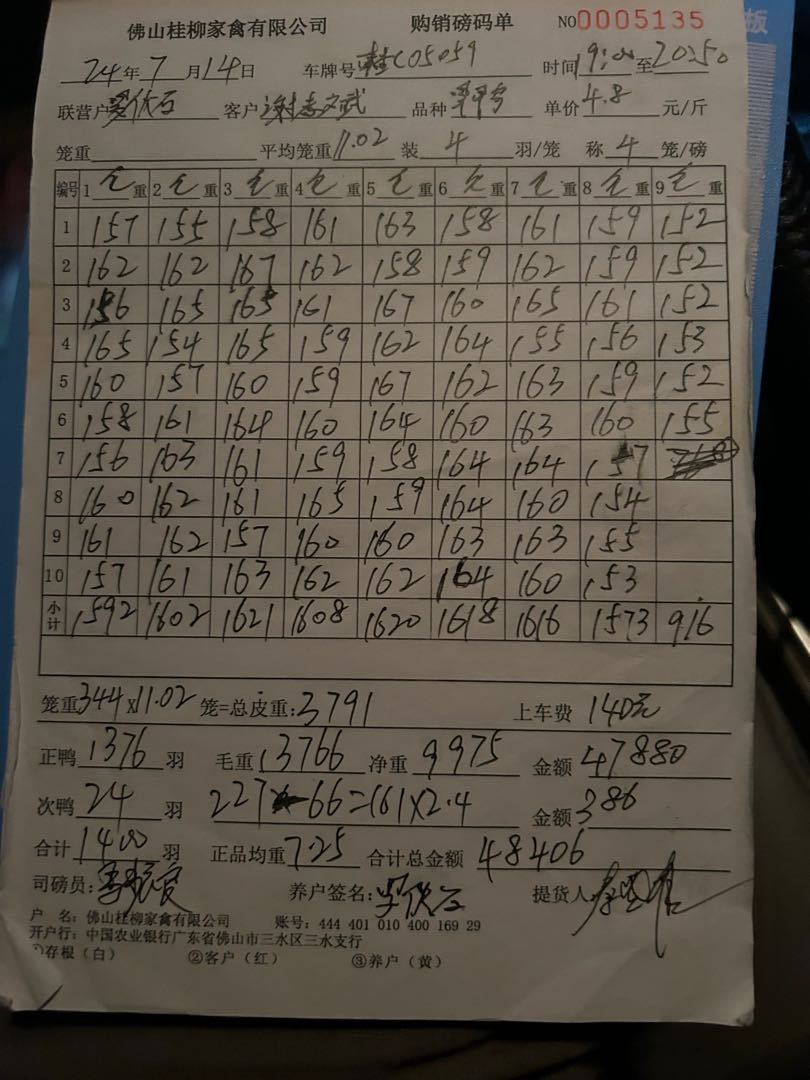 佛山桂柳家禽有限公司 购销磅码单 NO0005135
24年7月14日 车牌号桂C05059 时间19:00至20:50
联营户 客户谢志武 品种 单价4.8元/斤
笼重 平均笼重11.02 装4羽/笼 称4笼/磅
编号 1毛重 2毛重 3毛重 4毛重 5毛重 6毛重 7毛重 8毛重 9毛重
1 157 155 158 161 163 158 161 159 152
2 162 162 167 162 158 159 162 159 152
3 156 165 165 161 167 160 165 161 152
4 165 154 165 159 162 164 155 156 153
5 160 157 160 159 167 162 163 159 152
6 158 161 164 160 164 160 163 160 155
7 156 163 161 159 158 164 164 157
8 160 162 161 165 159 164 160 154
9 161 162 157 160 160 163 163 155
10 157 161 163 162 162 164 160 153
小计 1592 1602 1621 1608 1620 1618 1616 1573 916
笼重344×11.02笼=总皮重:3791 上车费140元
正鸭1376羽 毛重13766 净重9975 金额47880
次鸭24羽 227-66=161×2.4 金额386
合计1400羽 正品均重7.25 合计总金额48406
司磅员: 养户签名: 提货人
户 名: 佛山桂柳家禽有限公司 账号: 444 401 010 400 169 29
开户行: 中国农业银行广东省佛山市三水区三水支行
①存根(白) ②客户(红) ③养户(黄)
板